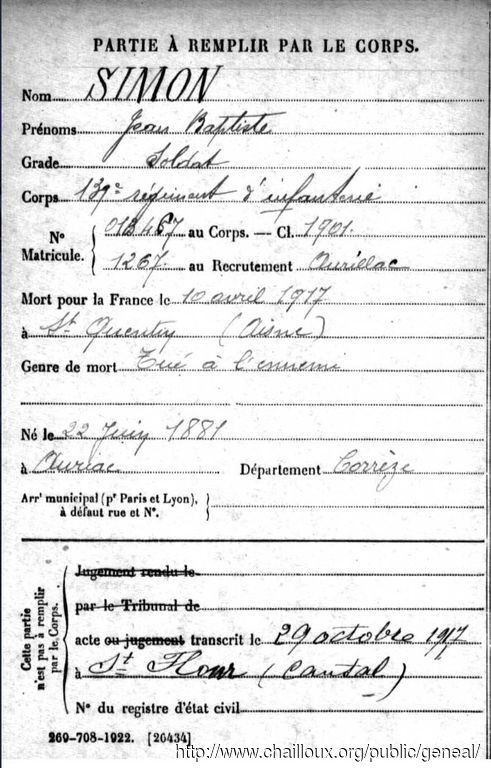 PARTIE À REMPLIR PAR LE CORPS.
Nom SIMON
Prénoms Jean Baptiste
Grade Soldat
Corps 139e régiment d'infanterie
No Matricule. 013467 au Corps. — Cl. 1901.
1267 au Recrutement Aurillac
Mort pour la France le 10 avril 1917
à St Quentin (Aisne)
Genre de mort Tué à l'ennemi
Né le 22 Juin 1881
à Auriac Département Corrèze
Arrt municipal (pr Paris et Lyon),
à défaut rue et No.
Cette partie
n'est pas à remplir
par le Corps.
Jugement rendu le
par le Tribunal de
acte ou jugement transcrit le 29 octobre 1917
à St Flour (Cantal)
No du registre d'état civil
269-708-1922. [26434]
http://www.chailloux.org/public/geneal/